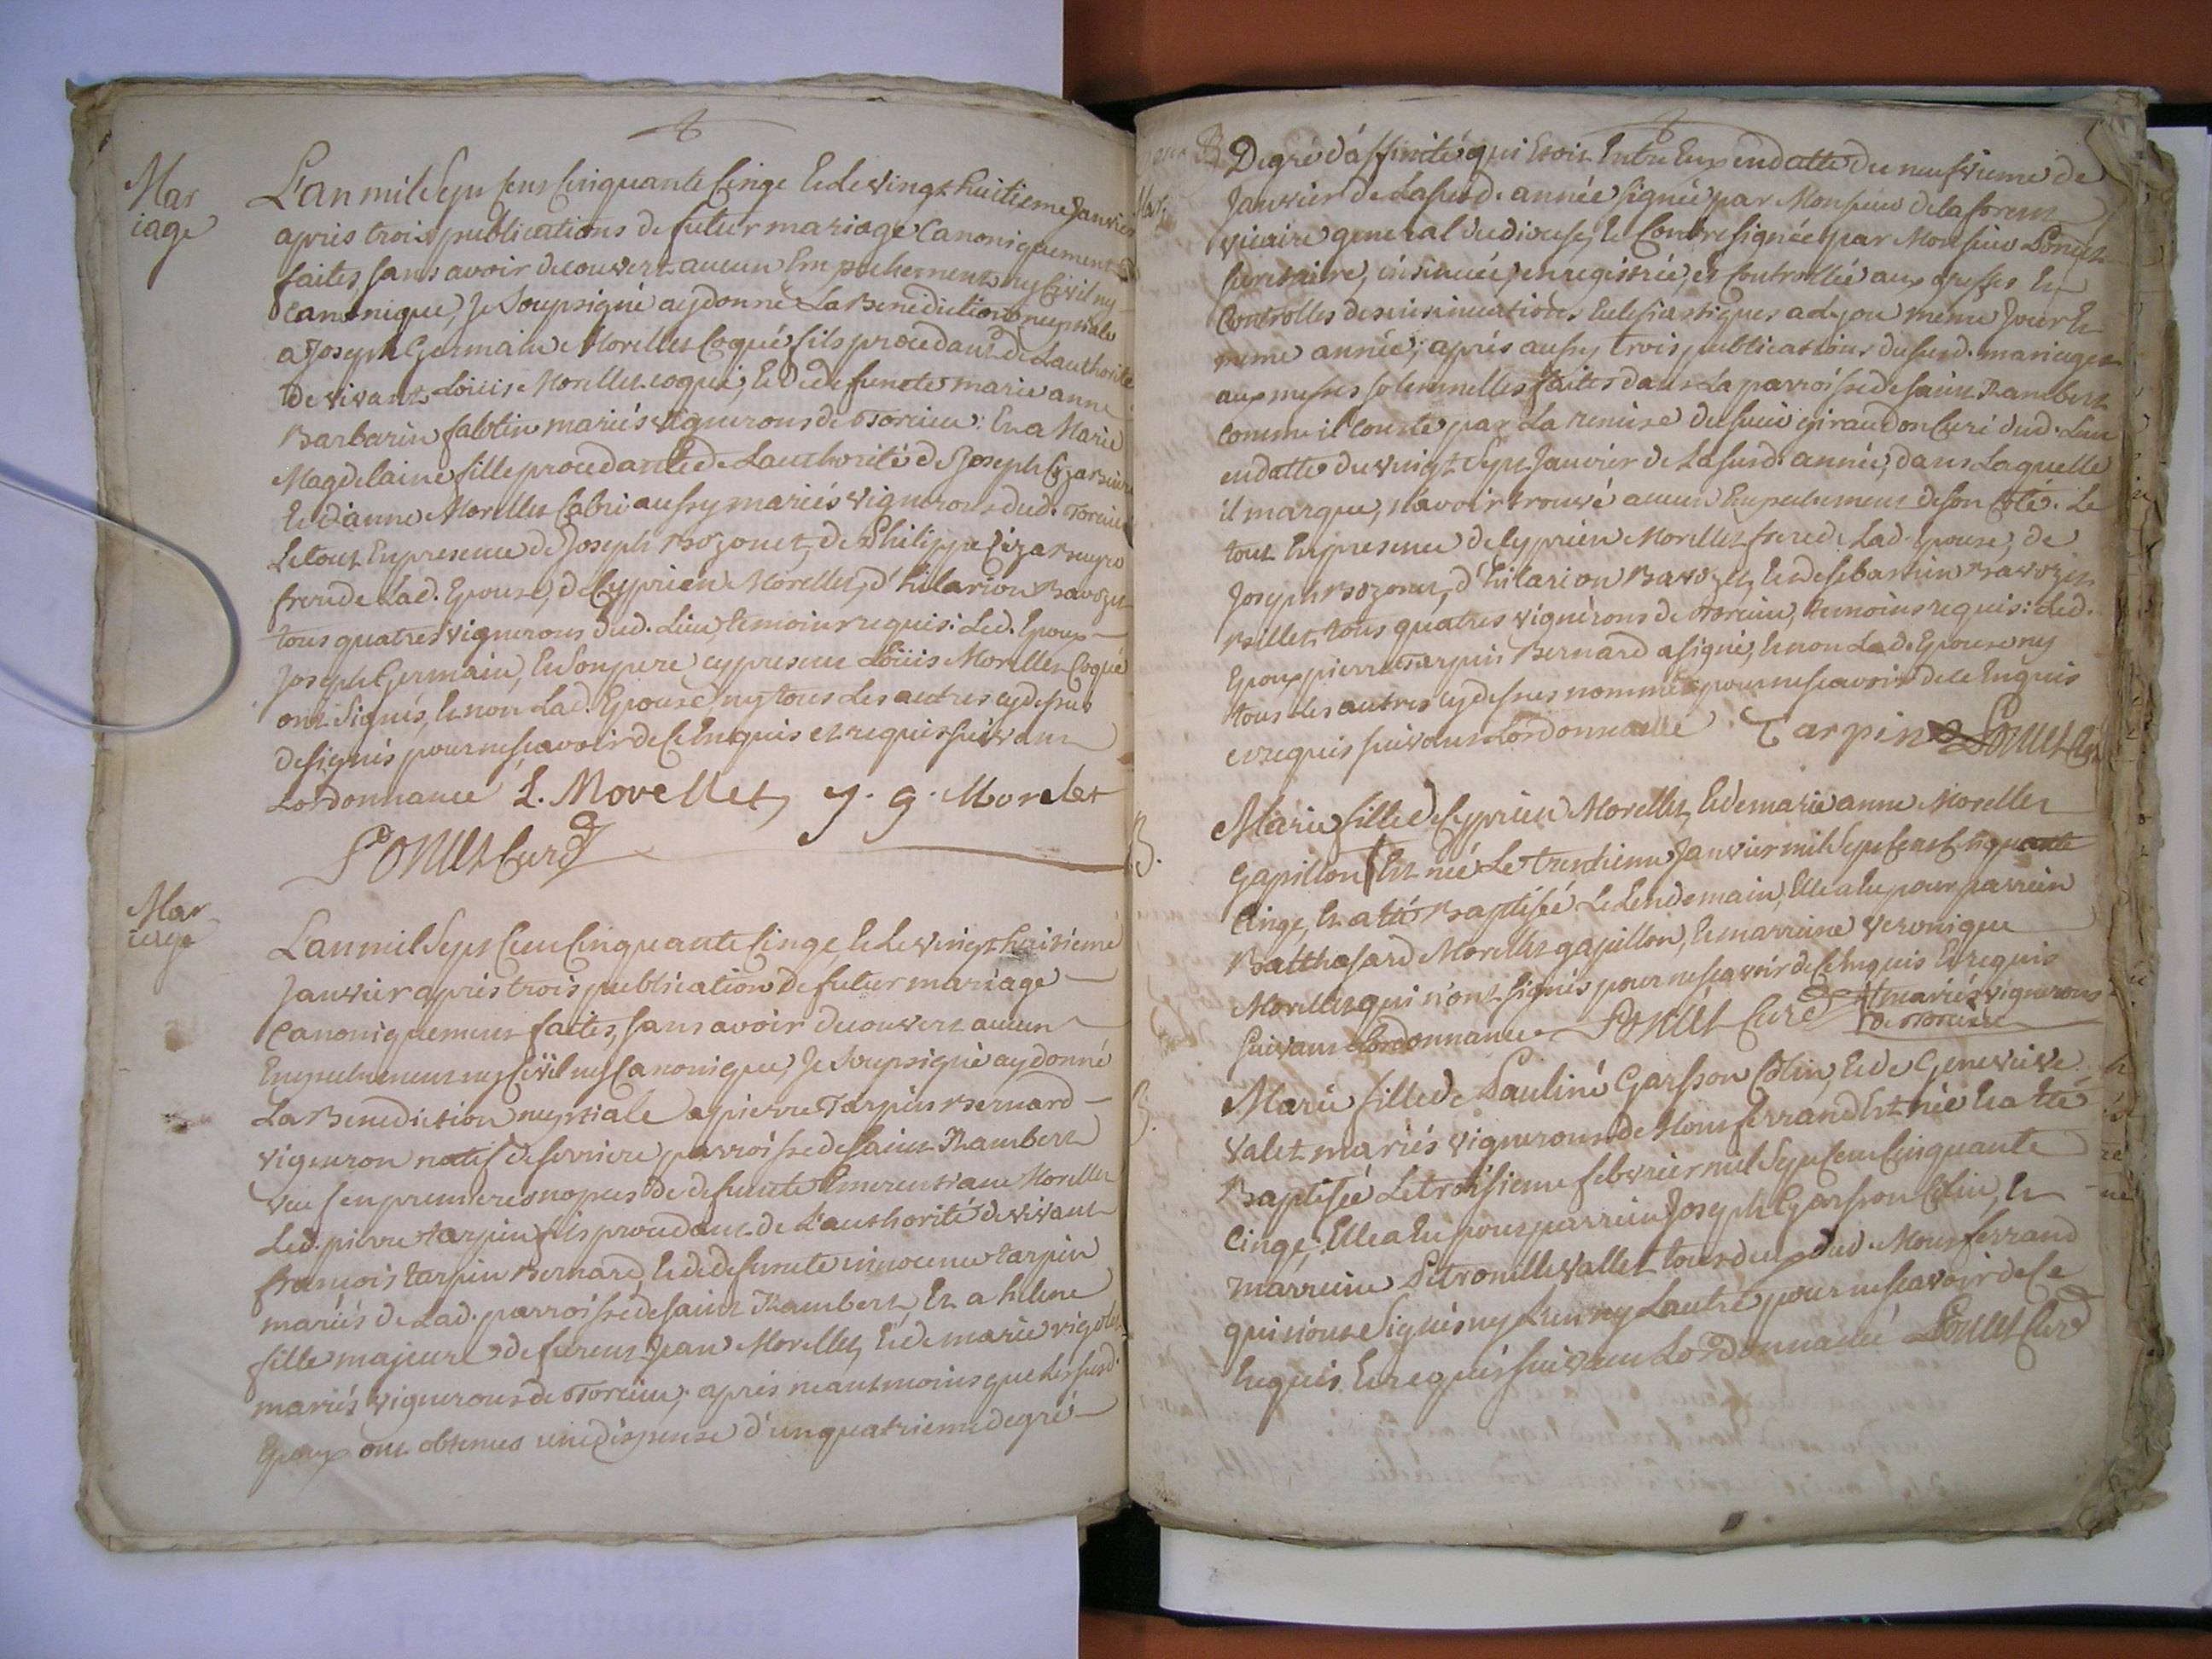 Mar
iage
L'an mil Sept Cens Cinquante Cinqe Et Le vingt huitieme Janvier
apres trois publications de futur mariage Canoniquement
faites, sans avoir decouvert aucun Empechement ny Civil ny
Canonique, Je Soupsigné ay donné La Benediction nuptiale
a Joseph Germain Morellet Coqué fils procedant de Lauthorité
de vivant Loüis Morellet coqué, Et de defuncte marie anne
Barbarin mariés vignerons de Torcieu: Et a Marie
Magdelaine fille procedante de Lauthorité de Joseph
Et d'anne Morellet Cabri aussy mariés vignerons dud. Torcieu
Le tout En presence de Joseph Bozonet, de Philippe
frere de Lad. Epouse, de Cyprien Morellet, d'hilarion Bavozet
tous quatres vignerons dud. Lieu, temoins requis: Led. Epoux
Joseph Germain, Et Son pere cy present Loüis Morellet Coqué
ont Signés, Et non Lad. Epouse ny tous Les autres cy dessus
designés pour ne scavoir de ce Enquis et requis suivant
Lordonnance L. Morellet, J. g. Morelet
Ponet Curé
Mar
iage
L'an mil Sept Cens Cinquante Cinqe, Et Le vingt huitieme
Janvier apres trois publication de futur mariage
Canoniquement faites, sans avoir decouvert aucun
Empechement ny Civil ny Canonique, Je Soupsigné ay donné
La Benediction nuptiale a pierre Tarpin Bernard
vigneron natif de Serriere parroisse de saint Rambert
veuf en premieres nopces de defuncte Emerentiane Morellet
Led. pierre tarpin fils procedant de L'authorité de vivant
francois tarpin Bernard, Et de defuncte innocence tarpin
mariés de Lad. parroisse de saint Rambert, Et a helene
fille majeure de Jean Morellet, Et de marie
mariés vignerons de Torcieu, apres neantmoins que Les susd.
Epoux ont obtenus une dispense d'un quatrieme degré
Degré d'affinité qui Etoit Entre Eux en datte du neufvieme de
Janvier de La susd. année signée par Monsieur de la forest
vicaire general du diocese, Et Contresignée par Monsieur
secretaire, insinuée, enregistrée, et Controllée aux greffes Et
Controlles des insinuations Eclesiastiques meme Jour Et
meme année; aprés aussy trois publications du susd. mariage
aux messes solemnelles faites dans La parroisse de saint Rambert
comme il conste par La remise du sieur giraudon Curé dud. Lieu
en datte du vingt Sept Janvier de La susd. année, dans Laquelle
il marque, n'avoir trouvé aucun Empechement de son Coté. Le
tout En presence de Cyprien Morellet frere de Lad. Epouse, de
Joseph Bozonet, d'hilarion Bavozet, Et de sebastien Bavozet
Billet, tous quatres vignerons de Torcieu, temoins requis: Led.
Epoux pierre Tarpin Bernard a signé, Et non Lad. Epouse ny
tous Les autres cy dessus nommés pour ne scavoir de ce Enquis
et requis suivant Lordonnance Tarpin Ponet Curé
B.
Marie fille de Cyprien Morellet, Et de marie anne Morellet
gapillon Est née Le trentieme Janvier mil Sept Cens Cinquante
Cinqe, Et a été Baptisée Le Lendemain, Elle a Eu pour parrein
Balthasard Morellet gapillon, Et marreine Veronique
Morellet qui n'ont signés pour ne scavoir de ce Enquis Et requis
suivant Lordonnance Ponet Curé mariés vignerons
de Torcieu
B.
Marie fille de Pauliné Garsson Colin, Et de Genevieve
Valet mariés vignerons de Montferrand Est née Et a été
Baptisée Le troisieme febvrier mil Sept Cens Cinquante
Cinqe, Elle a Eu pour parrein Joseph Garsson Colin, Et
marreine Petronille Vallet tous deux dud. Montferrand
qui n'ont Signés ny L'un ny Lautre pour ne scavoir de ce
Enquis Et requis suivant Lordonnance Ponet Curé